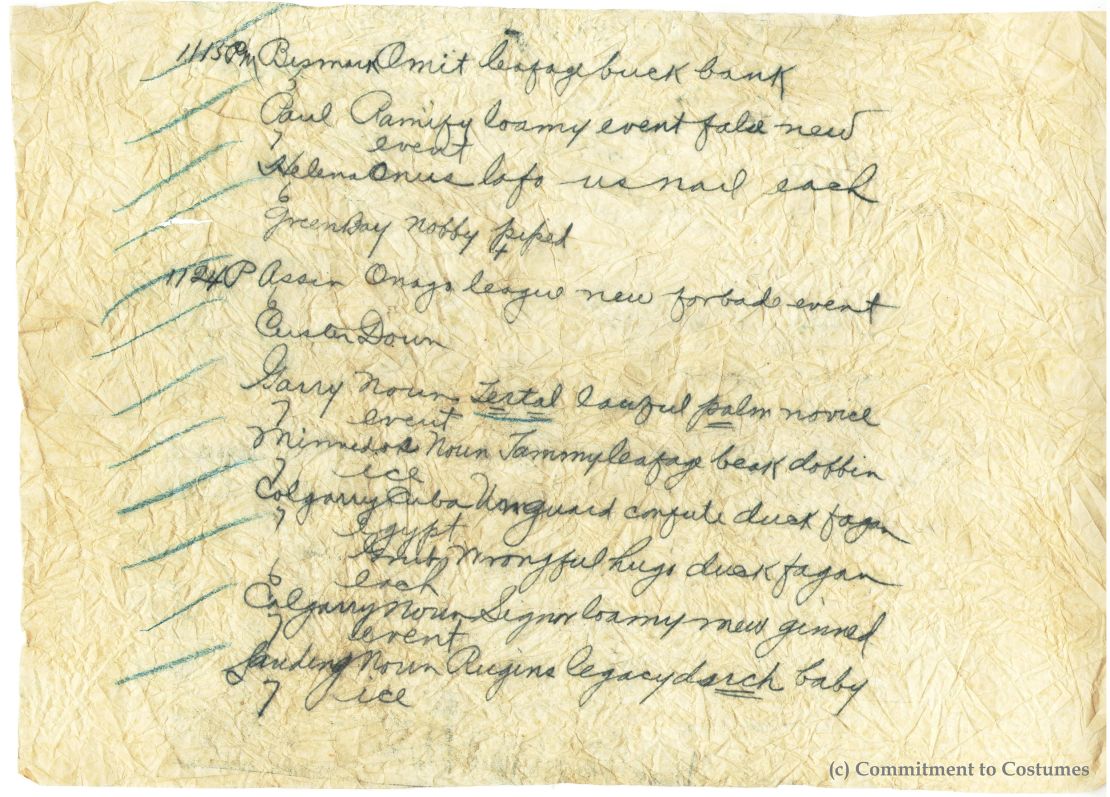 1113 PM Bismark Omit leafage buck bank
Paul Ramify loamy event false new
7 event
Helena Onus lofo us nail each
Green Bay nobby piped
1124 P Assin Onago league new forbade event
Custer Down
Garry Noun Tertal lawful palm novice
7 event
Minnedos Noun Jammy leafage beak dobbin
7 ice
Calgarry Cuba Unguard confute duck fagan
7 Egypt
Wrongful hugo duck fagan
each
Calgarry Noun Signor loamy new ginned
7 event
Landing Noun Rugins legacy duch baby
7 ice
(c) Commitment to Costumes